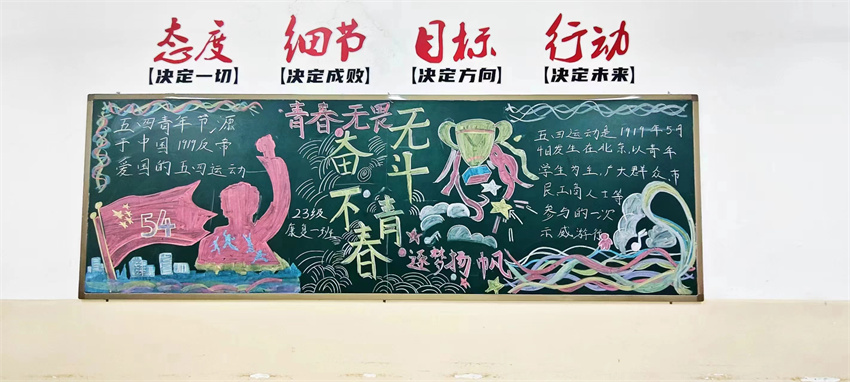 态度 细节 目标 行动
【决定一切】 【决定成败】 【决定方向】 【决定未来】
五四青年节,源
于中国1919反帝
爱国的五四运动
54
青春无畏
奋斗
不
青春
无
23级
康复一班
逐梦扬帆
五四运动是1919年5月
4日发生在北京,以青年
学生为主,广大群众,市
民,工商人士等
参与的一次
示威游行